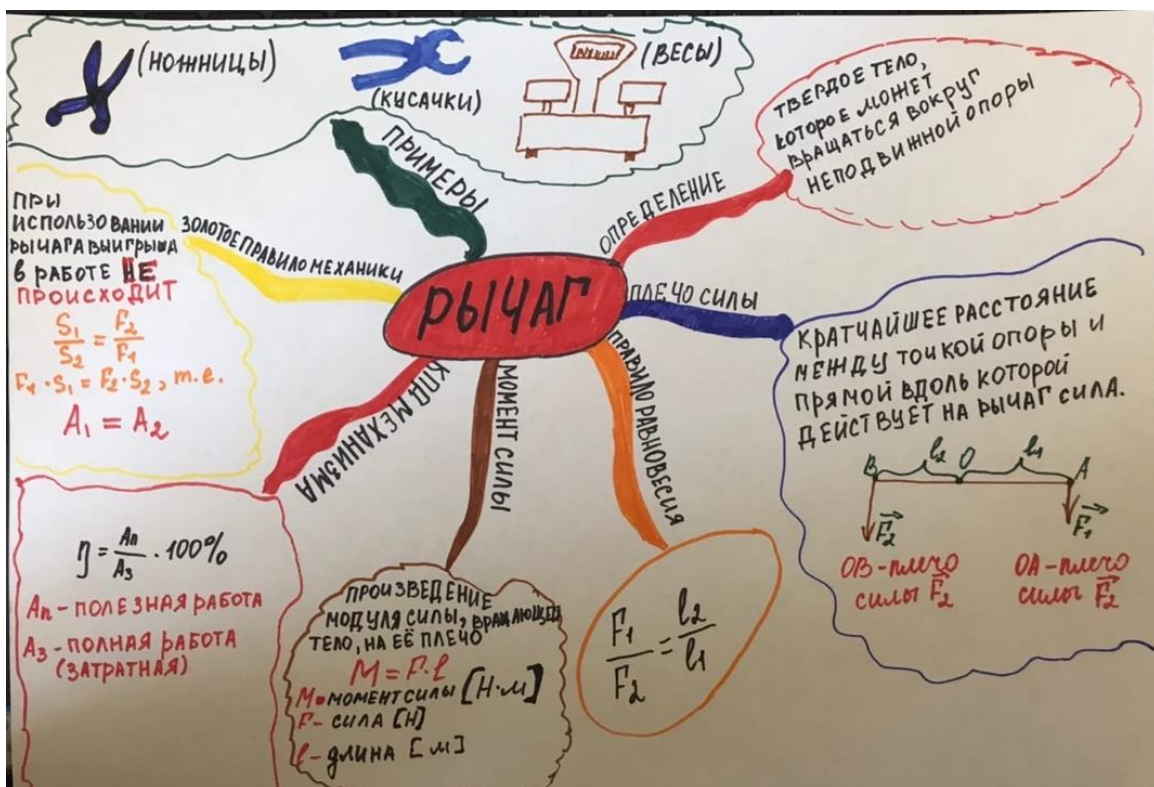 РЫЧАГ
ПРИМЕРЫ
(НОЖНИЦЫ)
(КУСАЧКИ)
(ВЕСЫ)
ОПРЕДЕЛЕНИЕ
ТВЕРДОЕ ТЕЛО,
КОТОРОЕ МОЖЕТ
ВРАЩАТЬСЯ ВОКРУГ
НЕПОДВИЖНОЙ ОПОРЫ
ПЛЕЧО СИЛЫ
КРАТЧАЙШЕЕ РАССТОЯНИЕ
МЕЖДУ ТОЧКОЙ ОПОРЫ И
ПРЯМОЙ ВДОЛЬ КОТОРОЙ
ДЕЙСТВУЕТ НА РЫЧАГ СИЛА.
B l₂ O l₁ A
F₂ F₁
OB-плечо
силы F₂
OA-плечо
силы F₂
ПРАВИЛО РАВНОВЕСИЯ
F₁/F₂ = l₂/l₁
МОМЕНТ СИЛЫ
ПРОИЗВЕДЕНИЕ
МОДУЛЯ СИЛЫ, ВРАЩАЮЩЕЙ
ТЕЛО, НА ЕЁ ПЛЕЧО
M = F·l
M-МОМЕНТ СИЛЫ [Н·м]
F- СИЛА [Н]
l-ДЛИНА [м]
КПД МЕХАНИЗМА
η = Aп/Aз · 100%
Aп - ПОЛЕЗНАЯ РАБОТА
Aз - ПОЛНАЯ РАБОТА
(ЗАТРАТНАЯ)
ЗОЛОТОЕ ПРАВИЛО МЕХАНИКИ
ПРИ
ИСПОЛЬЗОВАНИИ
РЫЧАГА ВЫИГРЫША
В РАБОТЕ НЕ
ПРОИСХОДИТ
S₁/S₂ = F₂/F₁
F₁·S₁ = F₂·S₂, т.е.
A₁ = A₂